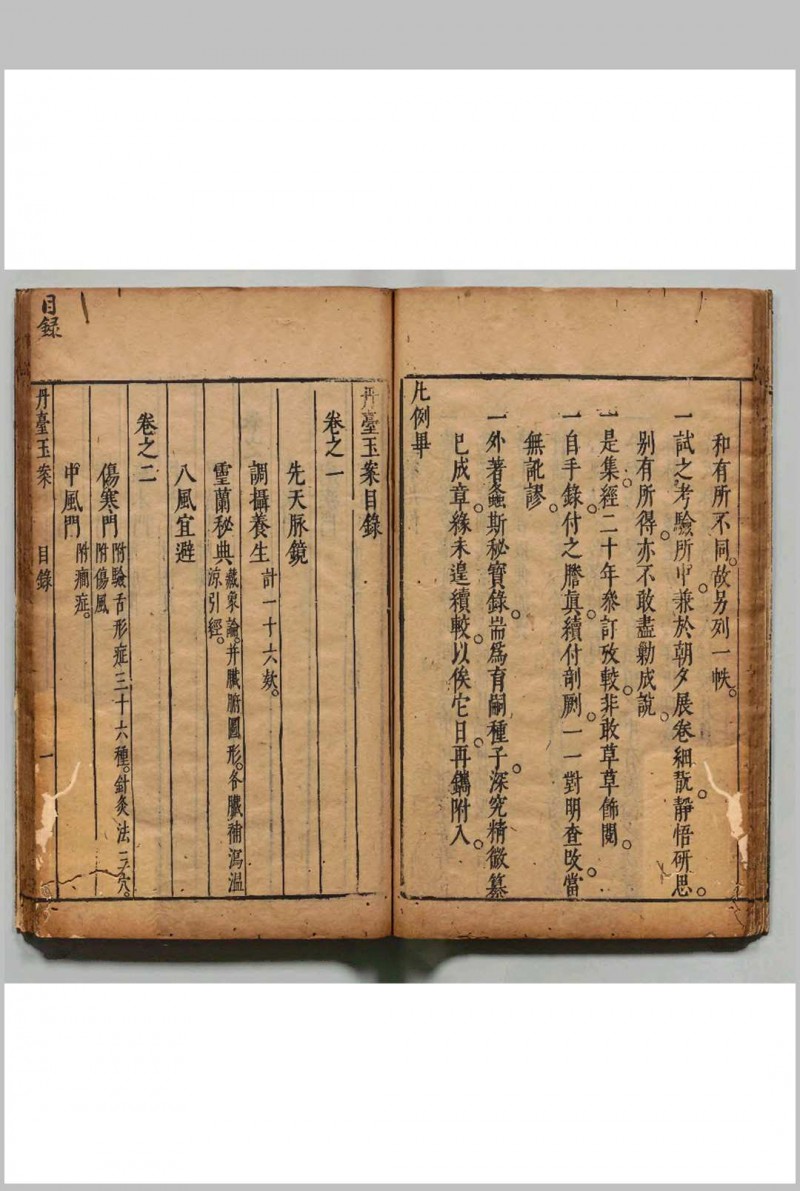 和有所不同。故另列一帙。
一試之考驗所中。兼於朝夕展卷細翫。靜悟研思。
別有所得。亦不敢盡勦成說。
一是集。經二十年叅訂攷較。非敢草草飾閱。
一自手錄付之謄眞。續付剞劂。一一對明查改。當
無訛謬。
一外著螽斯秘寶錄。耑爲育嗣種子。深究精微。纂
已成章。緣未遑續較。以俟它日。再鐫附入。
凡例畢
丹臺玉案目錄
卷之一
先天脉鏡
調攝養生 計一十六欸。
靈蘭秘典 藏象論。并臟腑圖形。各臟補瀉溫
涼引經。
八風宜避
卷之二
傷寒門 附驗舌形症三十六種。針灸法二穴。
附傷風
中風門 附癎症。
丹臺玉案 目錄 一
目錄